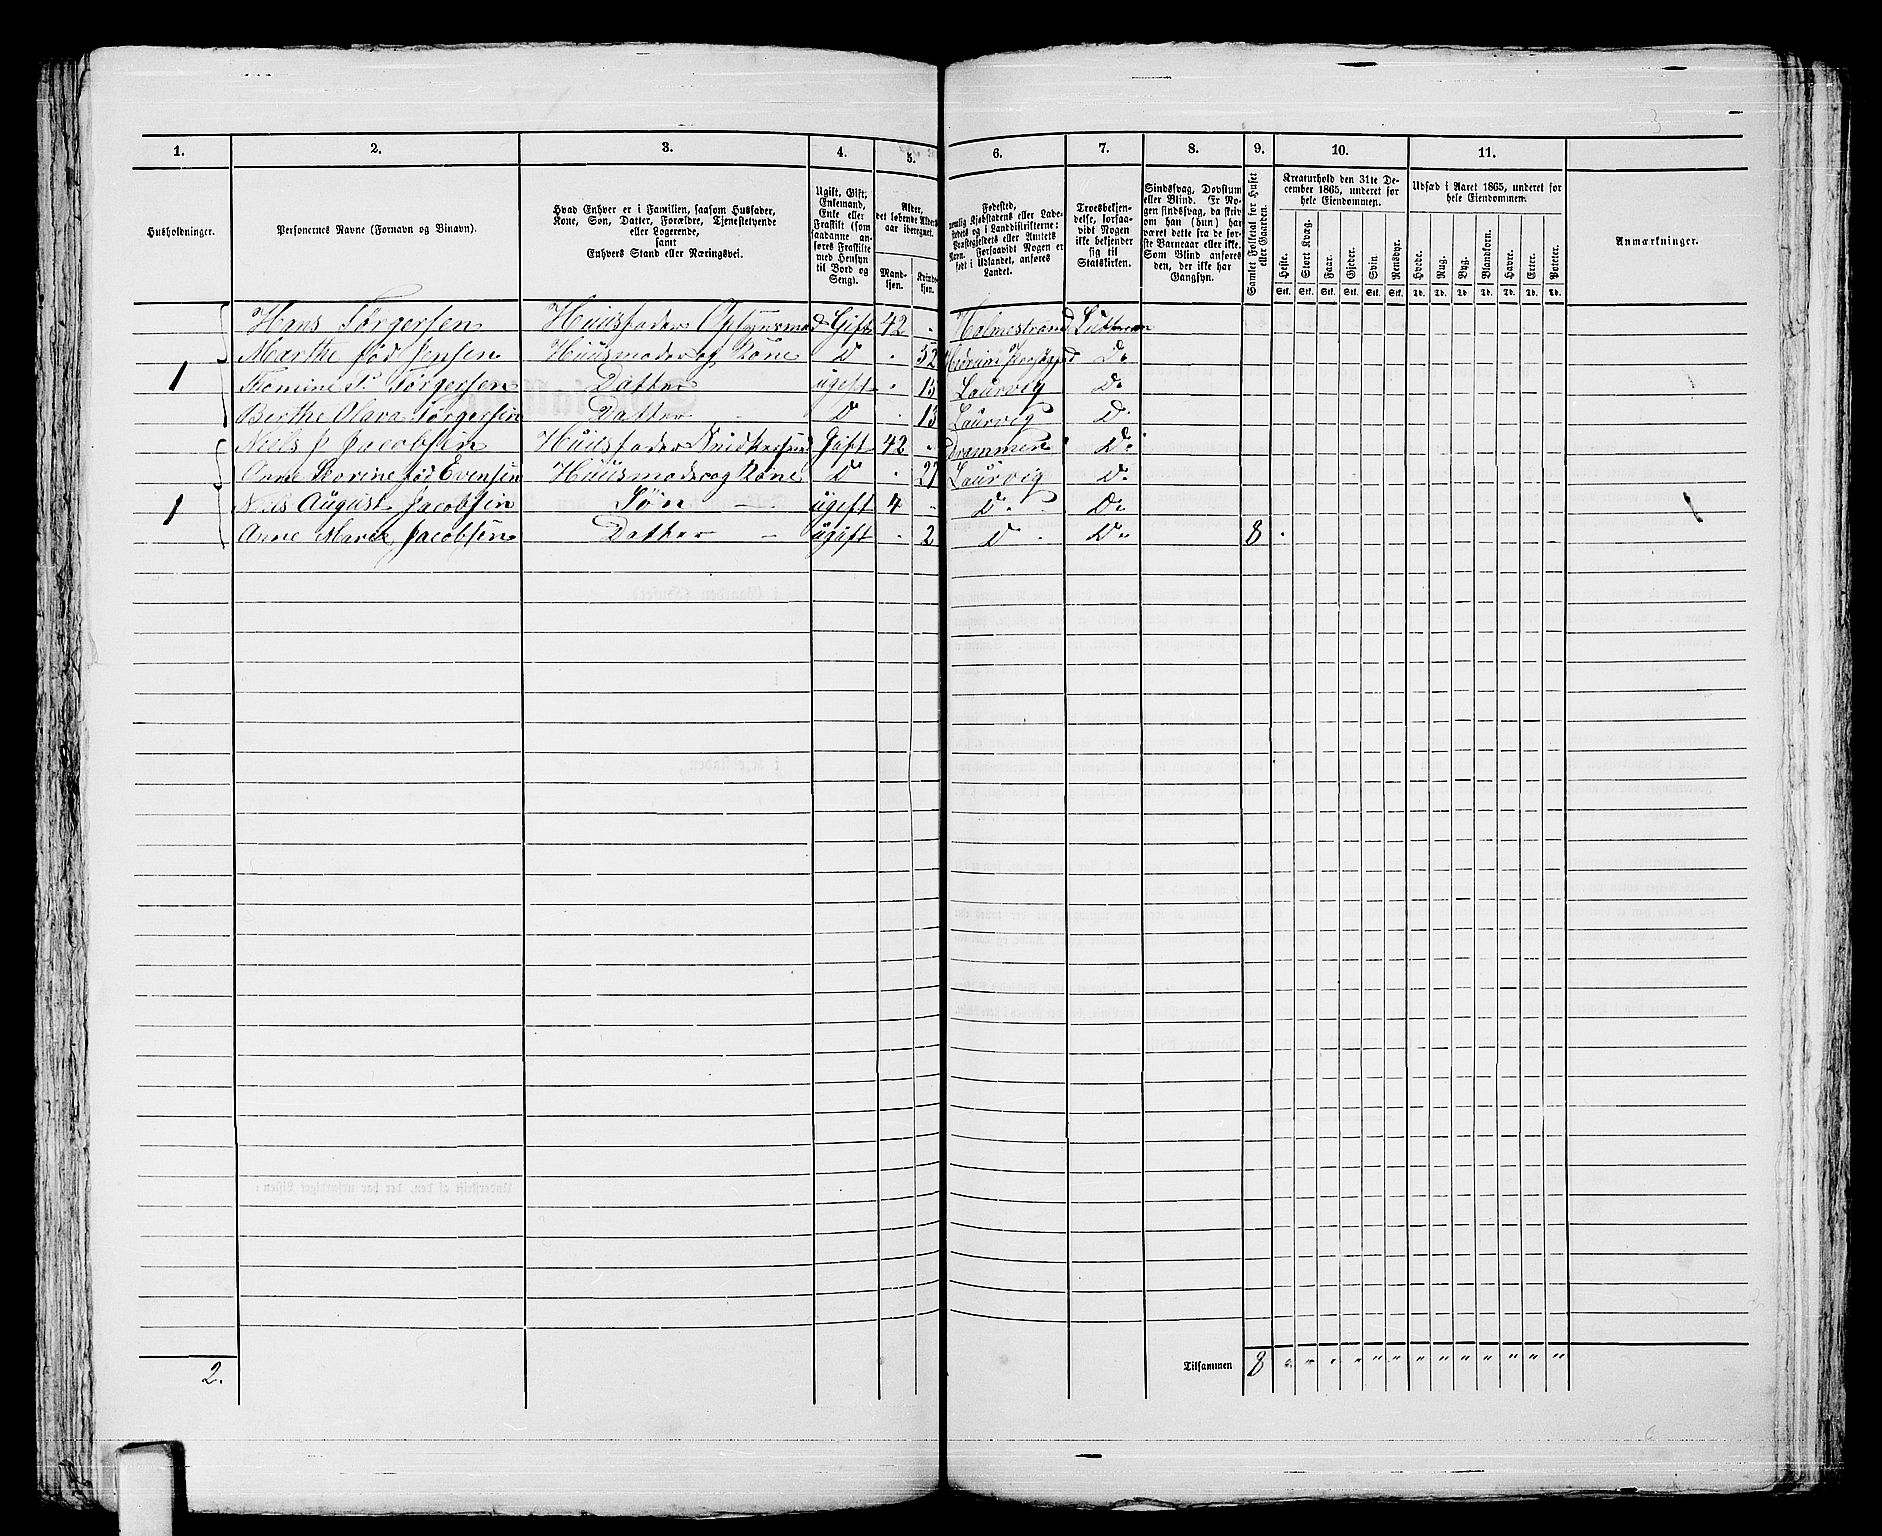 1. 2. 3. 4. 5. 6. 7. 8. 9. 10. 11.
Husholdninger.
Personernes Navne (Fornavn og Binavn).
Hvad Enhver er i Familien, saasom Husfader,
Kone, Søn, Datter, Forældre, Tjenestetyende
eller Logerende,
samt
Enhvers Stand eller Næringsvei.
Ugift, Gift,
Enkemand,
Enke eller
Fraskilt (som
saadanne an-
føres Fraskilte
med Hensyn
til Bord og
Seng).
Alder,
det løbende Alders-
aar iberegnet.
Mand-
kjøn.
Kvinde-
kjøn.
Fødested,
nemlig Kjøbstadens eller Lade-
stedets og i Landdistrikterne:
Præstegjeldets eller Amtets
Navn. Forsaavidt Nogen er
født i Udlandet, anføres
Landet.
Troesbekjen-
delse, forsaa-
vidt Nogen
ikke bekjender
sig til
Statskirken.
Sindssvag, Døvstum
eller Blind. Er No-
gen sindssvag, da skriv
om han (hun) har
været dette fra de før-
ste Barneaar eller ikke.
Som Blind anføres
den, der ikke har
Gangsyn.
Samlet Folketal for Huset
eller Gaarden.
Kreaturhold den 31te De-
cember 1865, underet for
hele Eiendommen.
Heste. Stort Kvæg. Faar. Gjeder. Svin Rensdyr.
Stk. Stk. Stk. Stk. Stk. Stk.
Udsæd i Aaret 1865, underet for
hele Eiendommen.
Hvede. Rug. Byg. Blandkorn. Havre. Erter. Poteter.
Td. Td. Td Td. Td. Td. Td.
Anmærkninger.
Hans Törgersen Huusfader Gift 42 Holmestrand
Marthe fød Jensen Huusmoder og Kone D 52 D.
1 Törgersen Datter ugift 15 Laurvig D.
Berthe Olava Törgersen Datter D 13 Laurvig D.
Niels J Jacobsen Huusfader Gift 42 Drammen D.
Anne fød Evensen Huusmoder og Kone D 27 Laurvig D.
1 Niels August Jacobsen Søn ugift 4 D. D.
Anne Jacobsen Datter ugift 2 D D. 8
2. Tilsammen 8 " " " " " " " " " " " " "